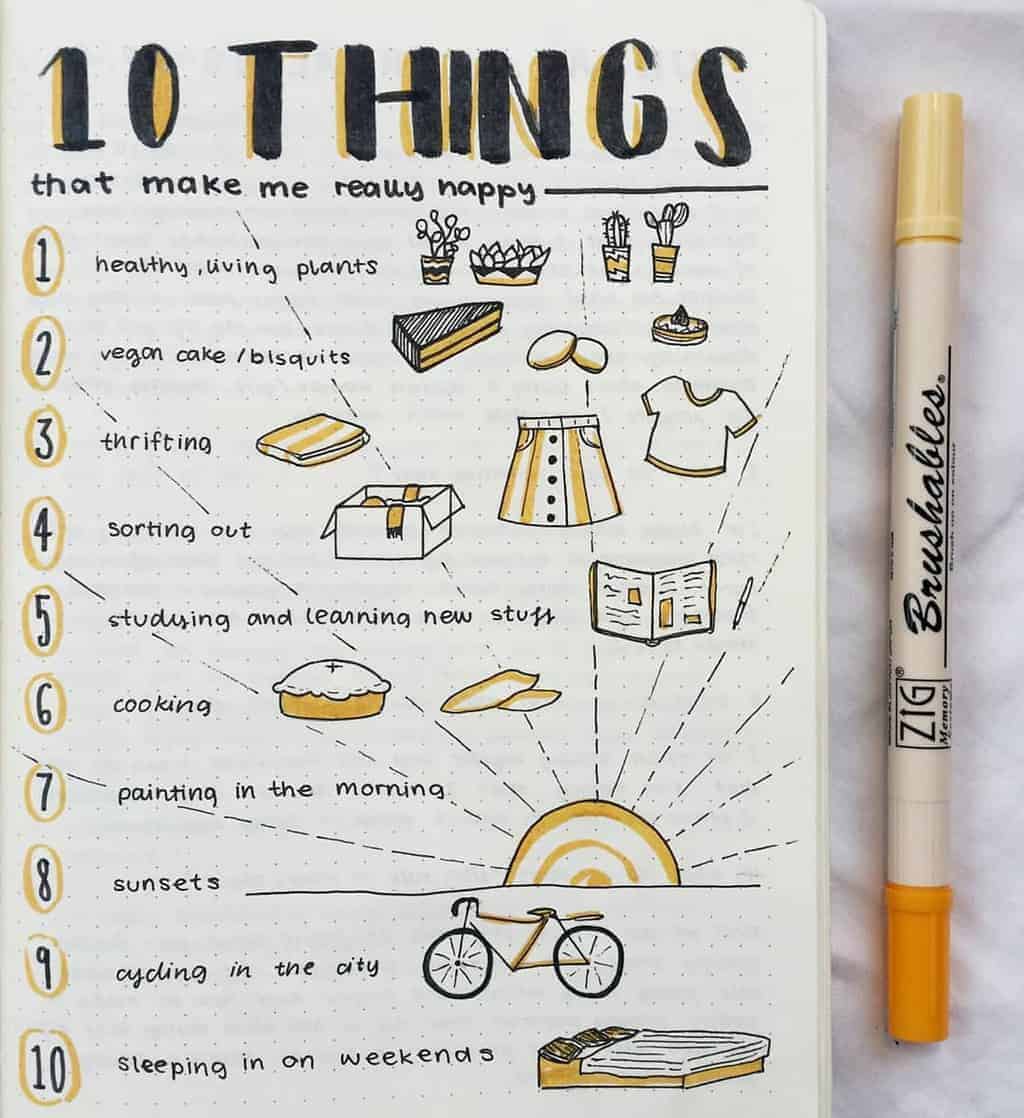 10 THINGS
that make me really happy
1 healthy, living plants
2 vegan cake /bisquits
3 thrifting
4 sorting out
5 studying and learning new stuff
6 cooking
7 painting in the morning
8 sunsets
9 cycling in the city
10 sleeping in on weekends
Brushables®
ZIG®
Memory